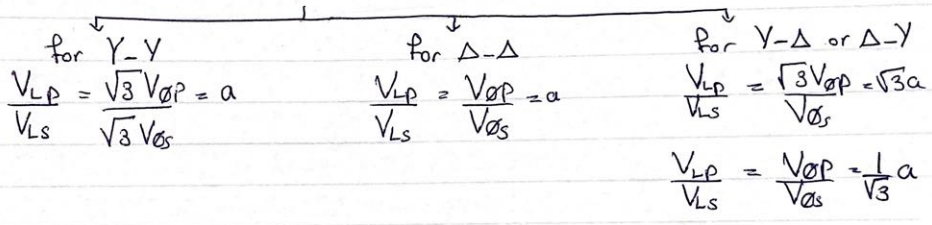 for Y-Y
V_LP / V_LS = √3 V_ØP / √3 V_Øs = a
for Δ-Δ
V_LP / V_LS = V_ØP / V_Øs = a
for Y-Δ or Δ-Y
V_LP / V_LS = √3 V_ØP / V_Øs = √3 a
V_LP / V_LS = V_ØP / V_Øs = 1/√3 a